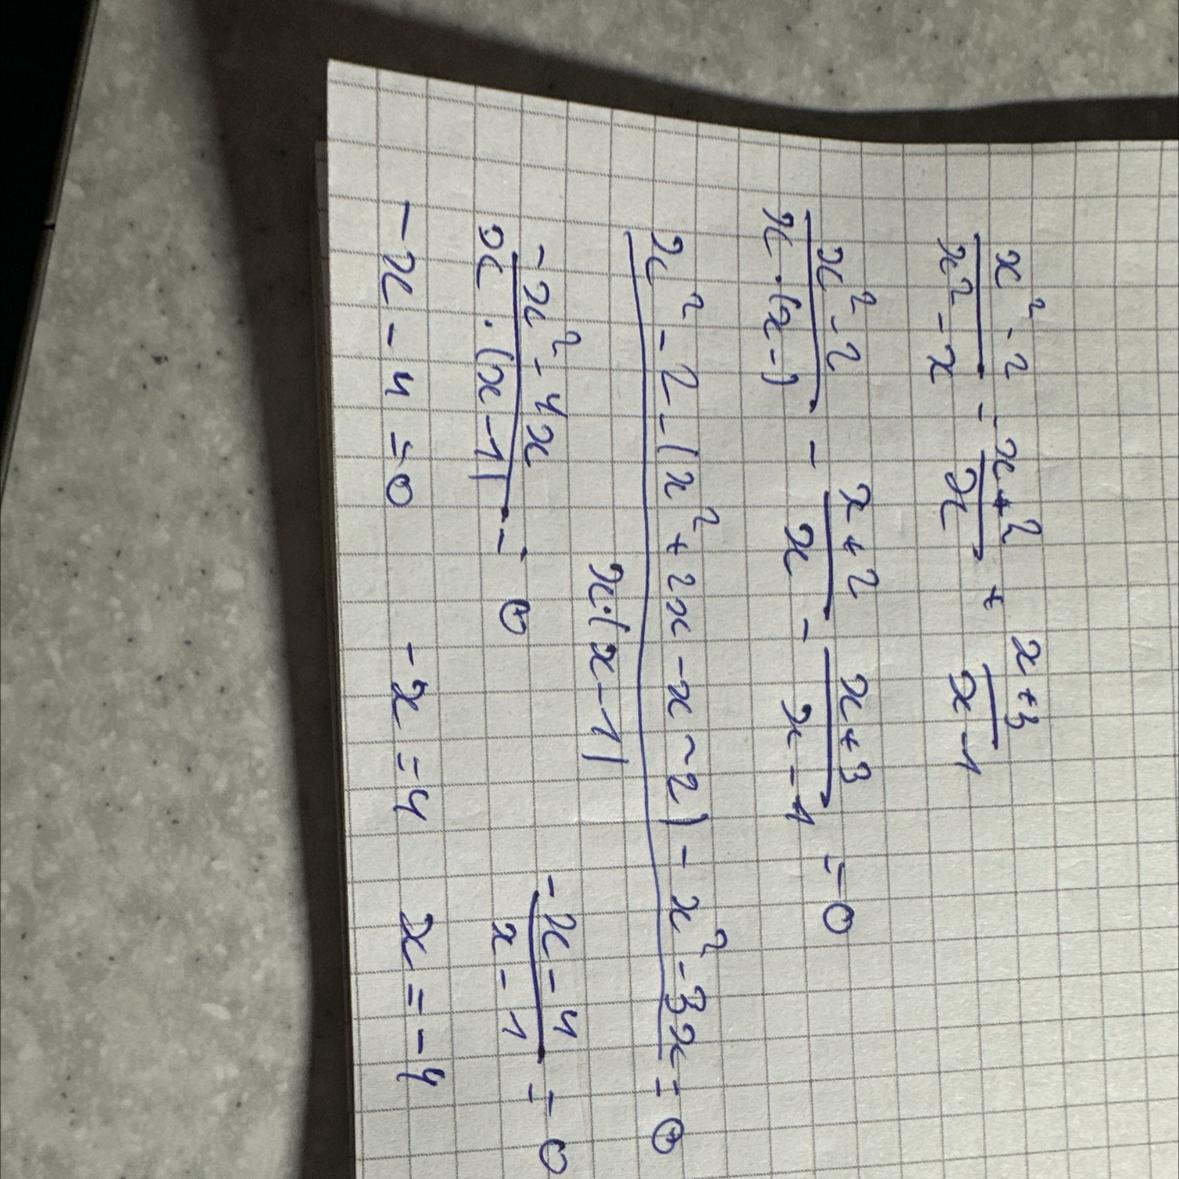 x² - 2 / x² - x - x+2 / x + x+3 / x-1
x² - 2 / x · (x-) - x+2 / x - x+3 / x-1 = 0
x² - 2 - (x² + 2x - x - 2) - x² - 3x / x·(x-1) = 0
-x² - 4x / x · (x-1) = 0 -x-4 / x-1 = 0
-x-4 = 0 -x = 4 x = -4